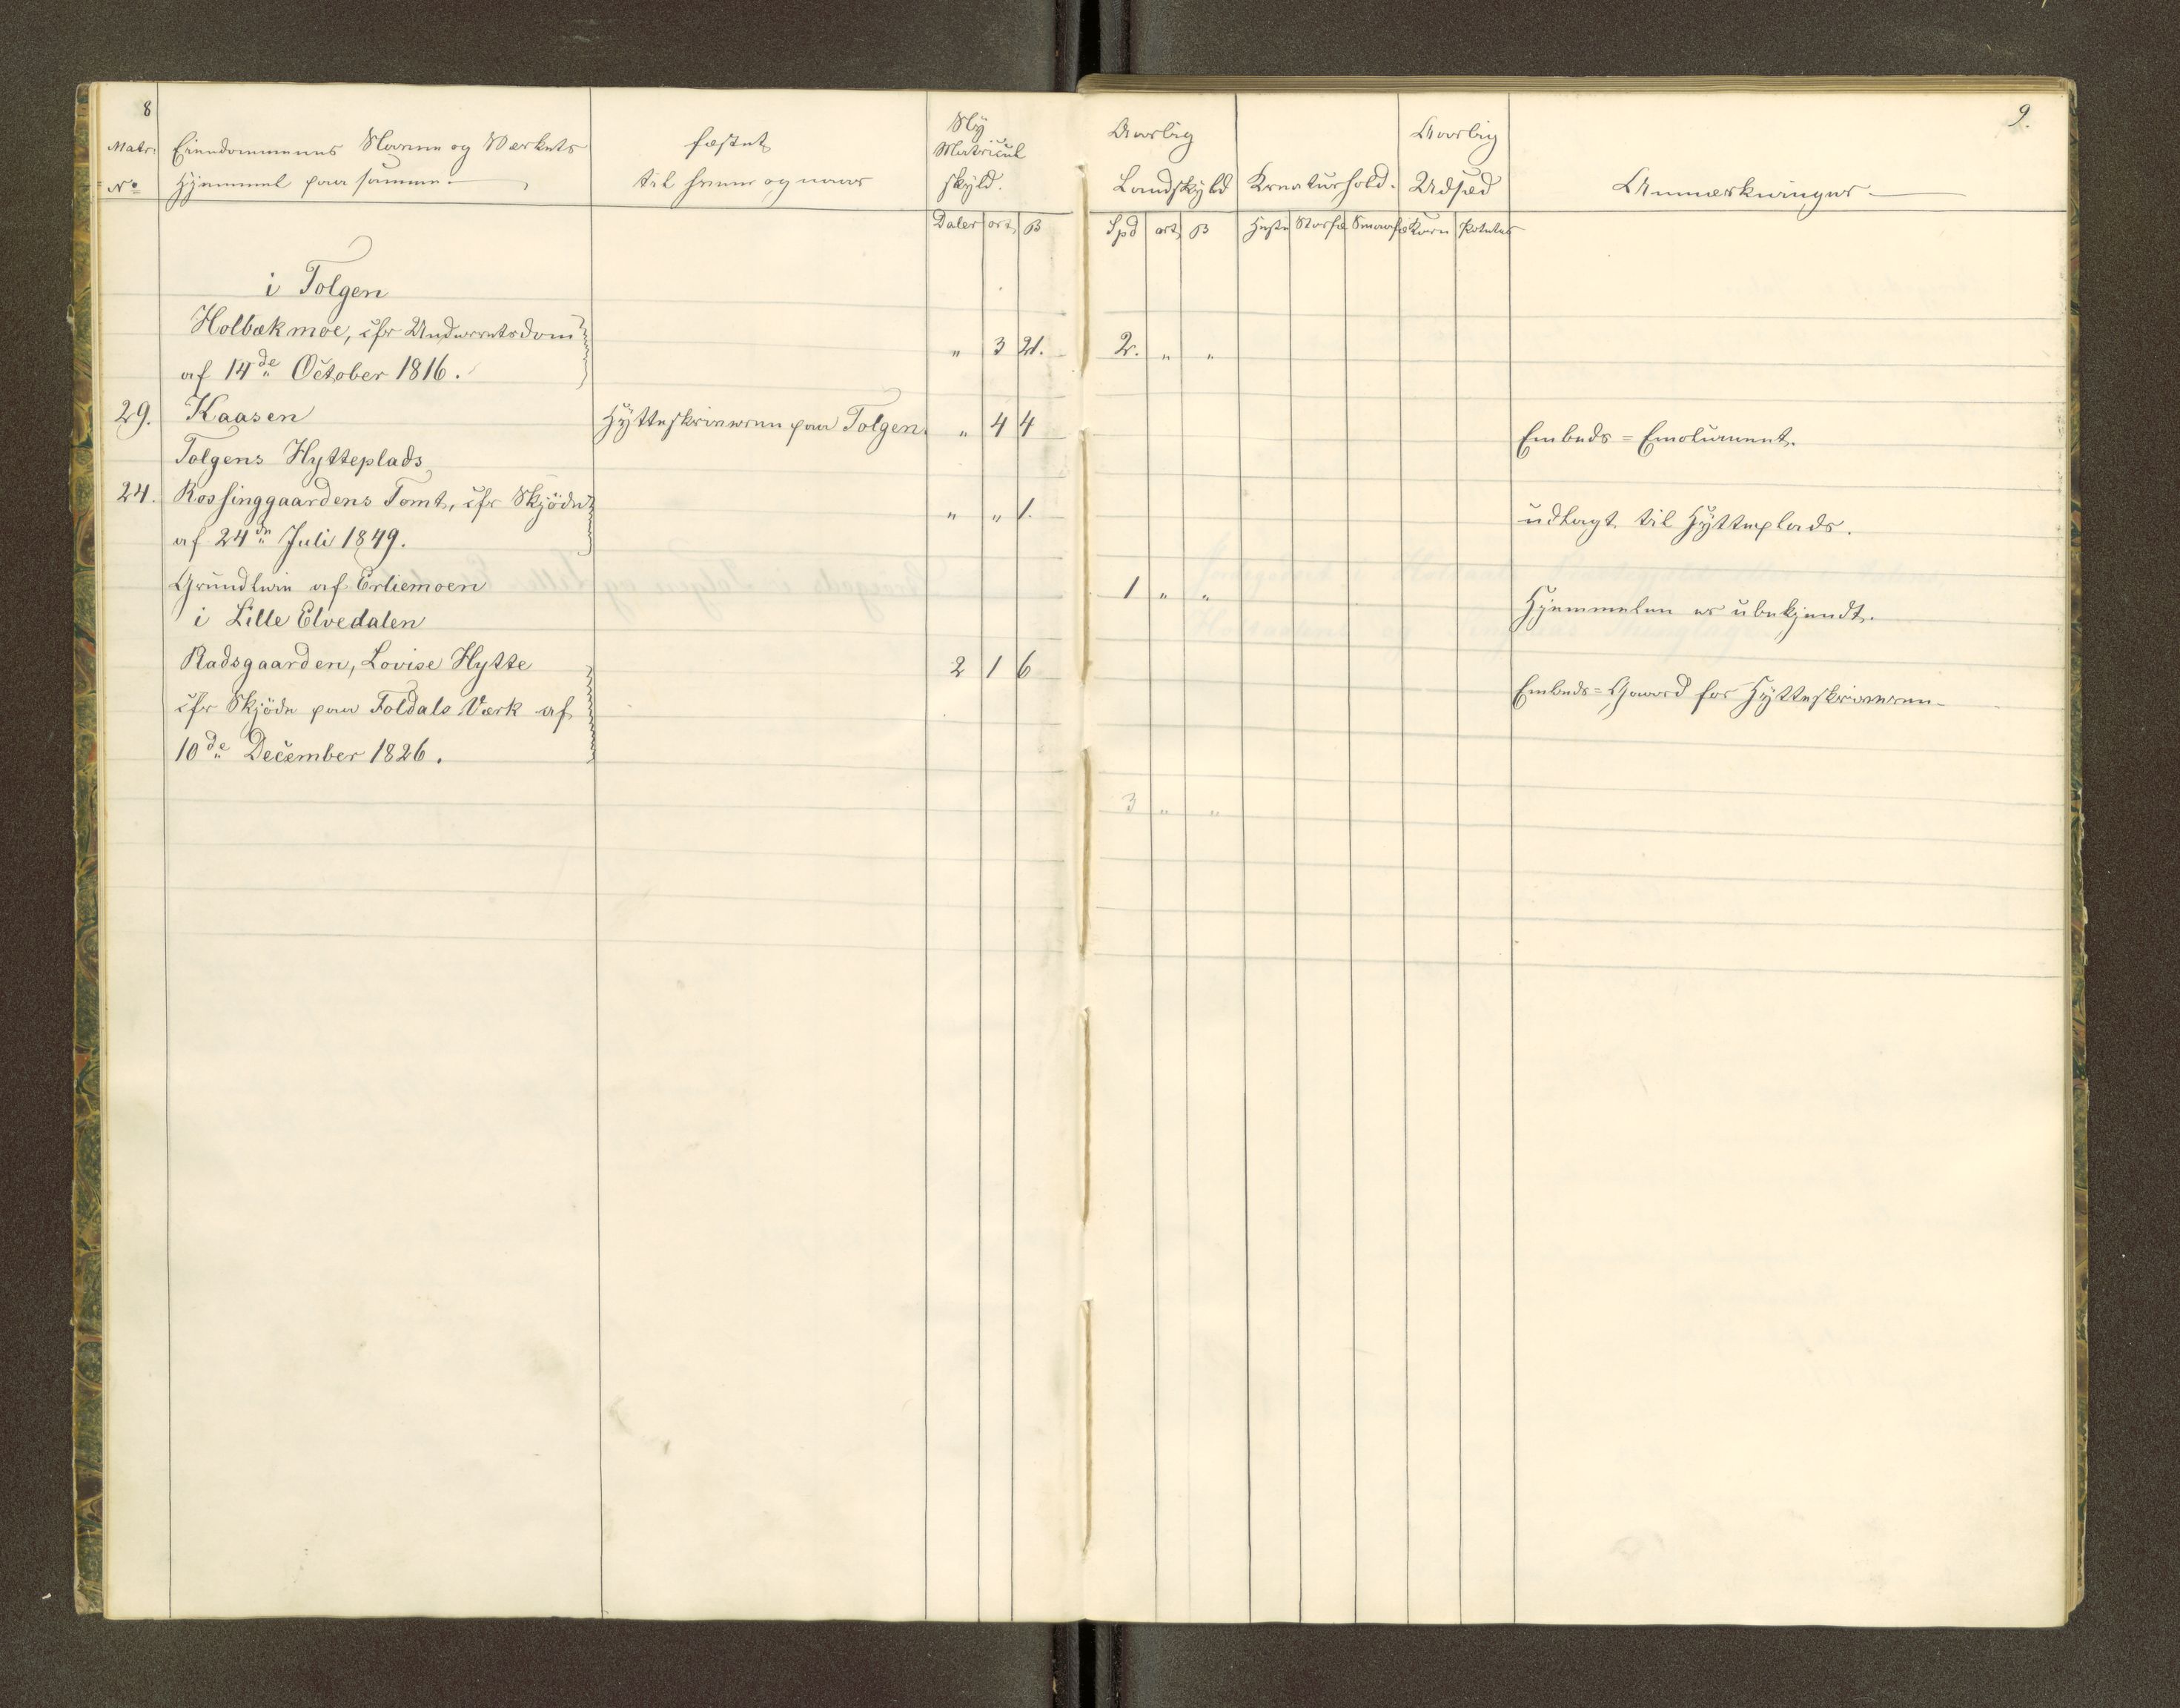 8
Matr: Eiendommenes Navne og Værkets fæstet Ny
Matricul
No Hjemmel paa samme. til hvem og naar skyld.
Daler ort ß
i Tolgen
Holbækmoe, cfr Underretsdom " 3 21.
af 14de October 1816.
29. Kaasen Hytteskriveren paa Tolgen. " 4 4
Tolgens Hytteplads
24. Rossinggaardens Tomt, cfr Skjöde " " 1.
af 24de Juli 1849.
Grundleie af Erliemoen
i Lille Elvedalen
Radsgaarden, Lovise Hytte 2 1 6
cfr Skjöde paa Foldals Værk af
10de December 1826.
9.
Aarlig Aarlig
Landskyld Kreaturhold. Udsæd Anmærkninger.
Spd ort ß Heste Storfæ Smaafæ Korn Poteter
2. " "
Embeds=Emolument.
udlagt til Hytteplads.
1 " "
Hjemmelen er ubekjendt.
Embeds=Gaard for Hytteskriveren.
3 " "